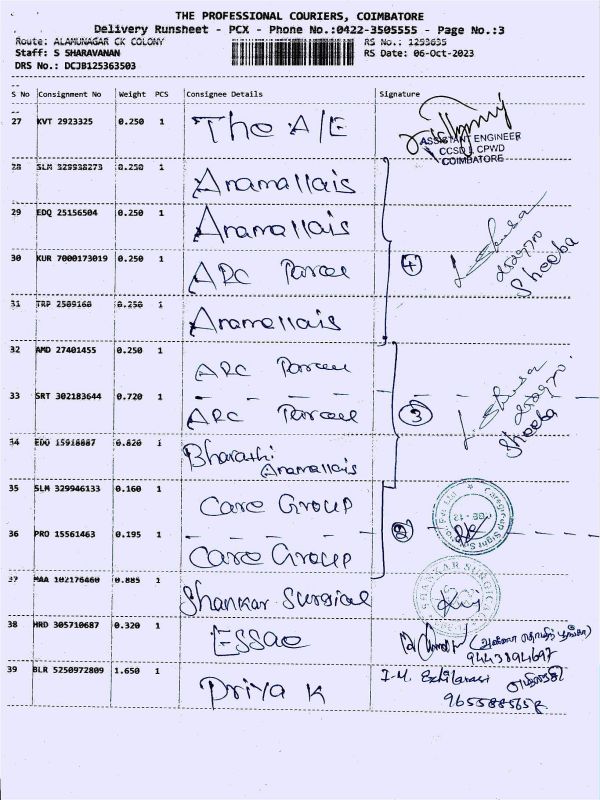 THE PROFESSIONAL COURIERS, COIMBATORE
Delivery Runsheet - PCX - Phone No.:0422-3505555 - Page No.:3
Route: ALAMUNAGAR CK COLONY RS No.: 1253635
Staff: S SHARAVANAN RS Date: 06-Oct-2023
DRS No.: DCJB125363503
S No Consignment No Weight PCS Consignee Details Signature
27 KVT 2923325 0.250 1 The A/E
ASSISTANT ENGINEER
CCSD 1 CPWD
COIMBATORE
28 SLM 329938273 0.250 1 Anamallais
29 EDQ 25156504 0.250 1 Anamallais
30 KUR 7000173019 0.250 1 ARC Parcel 4
Shooba
31 TRP 2509168 0.250 1 Anamallais
32 AMD 27401455 0.250 1 ARC Parcel
33 SRT 302183644 0.720 1 ARC Parcel 3
Shooba
34 EDQ 15918887 0.820 1 Bharathi
Anamallais
35 SLM 329946133 0.160 1 Care Group
36 PRO 15561463 0.195 1 Care Group 2
37 MAA 102176460 0.885 1 Shankar Surgical
38 HRD 305710687 0.320 1 ESSae
9443894697
39 BLR 5250972809 1.650 1 Priya K
I-M. Ezhilarasi எழிலரசி